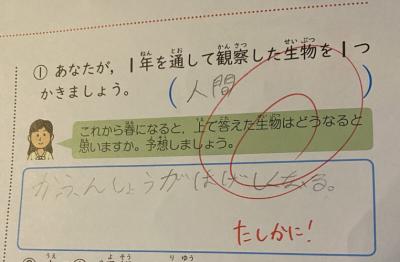 ① あなたが，1年を通して観察した生物を1つ
かきましょう。 (人間
これから春になると，上で答えた生物はどうなると
思いますか。予想しましょう。
かふんしょうがはげしくなる。
たしかに!